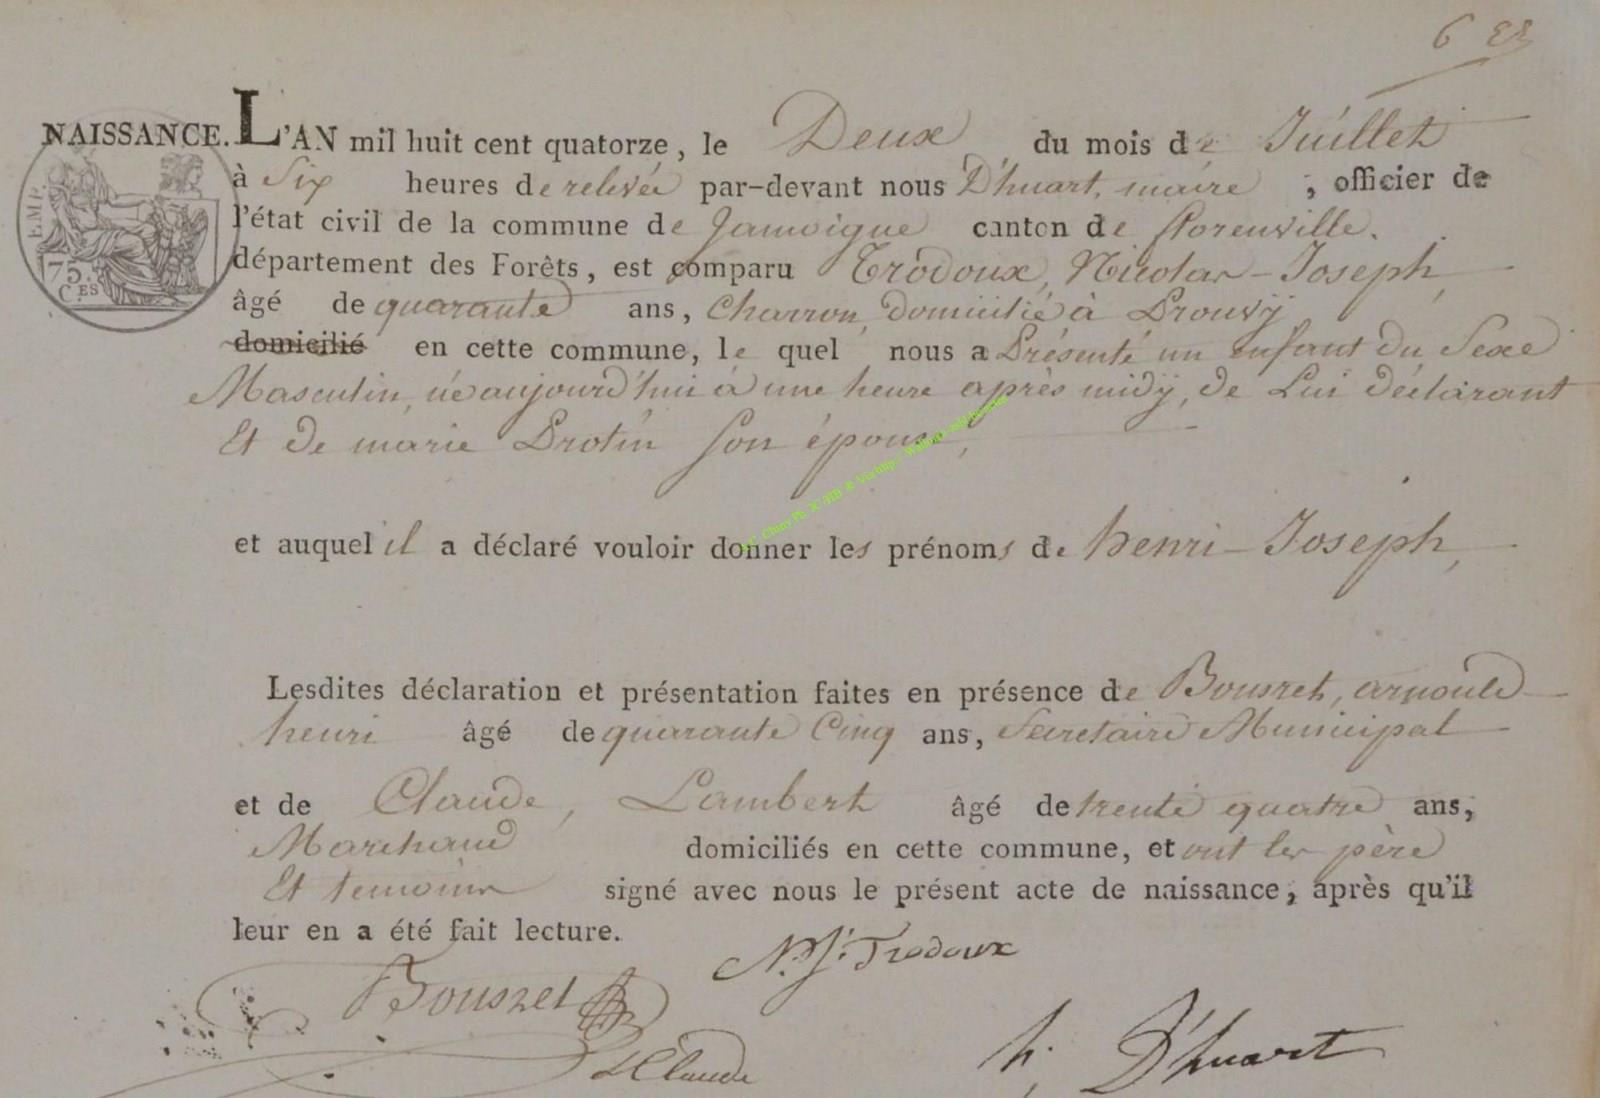 NAISSANCE. L'AN mil huit cent quatorze, le Deux du mois de Juillet
à Six heures de relevée par-devant nous D'huart, maire, officier de
l'état civil de la commune de Jamoigne canton de florenville.
département des Forêts, est comparu Trodoux, Nicolas-Joseph,
âgé de quarante ans, Charron, domicilié à Prouvÿ
domicilié en cette commune, le quel nous a Présenté un enfant du Sexe
Masculin, né aujourd'hui à une heure après midÿ, de Lui déclarant
Et de marie Protin son épouse,
et auquel il a déclaré vouloir donner les prénoms de henri-Joseph,
Lesdites déclaration et présentation faites en présence de Bousret, arnould
henri âgé de quarante Cinq ans, Secretaire Municipal
et de Claude, Lambert âgé de trente quatre ans,
Marchand domiciliés en cette commune, et ont les père
Et temoins signé avec nous le présent acte de naissance, après qu'il
leur en a été fait lecture.
N. J. Trodoux
Bousret
LClaude
h. D'huart
EMP.
75.
C.ES